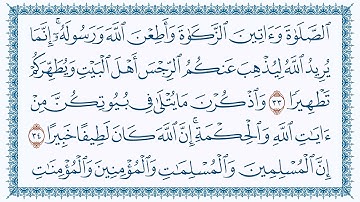 ٱلصَّلَوٰةَ وَءَاتِينَ ٱلزَّكَوٰةَ وَأَطِعْنَ ٱللَّهَ وَرَسُولَهُۥٓ ۚ إِنَّمَا
يُرِيدُ ٱللَّهُ لِيُذْهِبَ عَنكُمُ ٱلرِّجْسَ أَهْلَ ٱلْبَيْتِ وَيُطَهِّرَكُمْ
تَطْهِيرًا ٣٣ وَٱذْكُرْنَ مَا يُتْلَىٰ فِى بُيُوتِكُنَّ مِنْ
ءَايَـٰتِ ٱللَّهِ وَٱلْحِكْمَةِ ۚ إِنَّ ٱللَّهَ كَانَ لَطِيفًا خَبِيرًا ٣٤
إِنَّ ٱلْمُسْلِمِينَ وَٱلْمُسْلِمَـٰتِ وَٱلْمُؤْمِنِينَ وَٱلْمُؤْمِنَـٰتِ